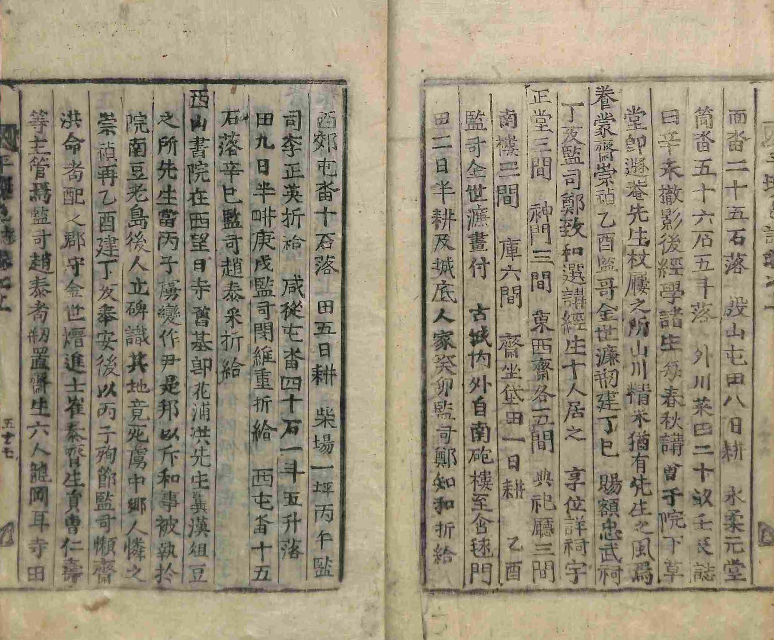 而畓二十五石落 設山屯田八日耕 永柔元堂
筒畓五十六石五斗落 外川菜田二十 壬辰誌
曰辛未撤影後經學諸生每春秋講會于院下草
堂卽遯菴先生杖屨之所山川精采猶有先生之風焉
養蒙齋崇禎乙酉監司金世濂刱建丁巳 賜額忠武祠
丁亥監司鄭致和選講經生十人居之 享位詳祠宇
正堂三間 神門三間 東西齋各五間 典祀廳三間
南樓三間 庫六間 齋坐垈田一日耕 乙酉
監司金世濂畫付 古城內外自南砲樓至含毬門
田二日半耕及城底人家癸卯監司鄭知和折給
西郊屯畓十石落 田五日耕 柴場一坪丙午監
司李正英折給 咸從屯畓四十石一斗五升落
田九日半畊庚戌監司閔維重折給 西屯畓十五
石落辛巳監司趙泰采折給
西山書院在西望日寺舊基卽花浦洪先生翼漢俎豆
之所先生當丙子虜變作尹是邦以斥和事被執於
院南豆老島後人立碑識其地竟死虜中鄉人憐之
崇禎再乙酉建丁亥奉安後以丙子殉節監司懶齋
洪命耉配之郡守金世熷進士崔泰齊生員曺仁壽
等主管焉監司趙泰耉刱置齋生六人龍岡耳寺田
五十七